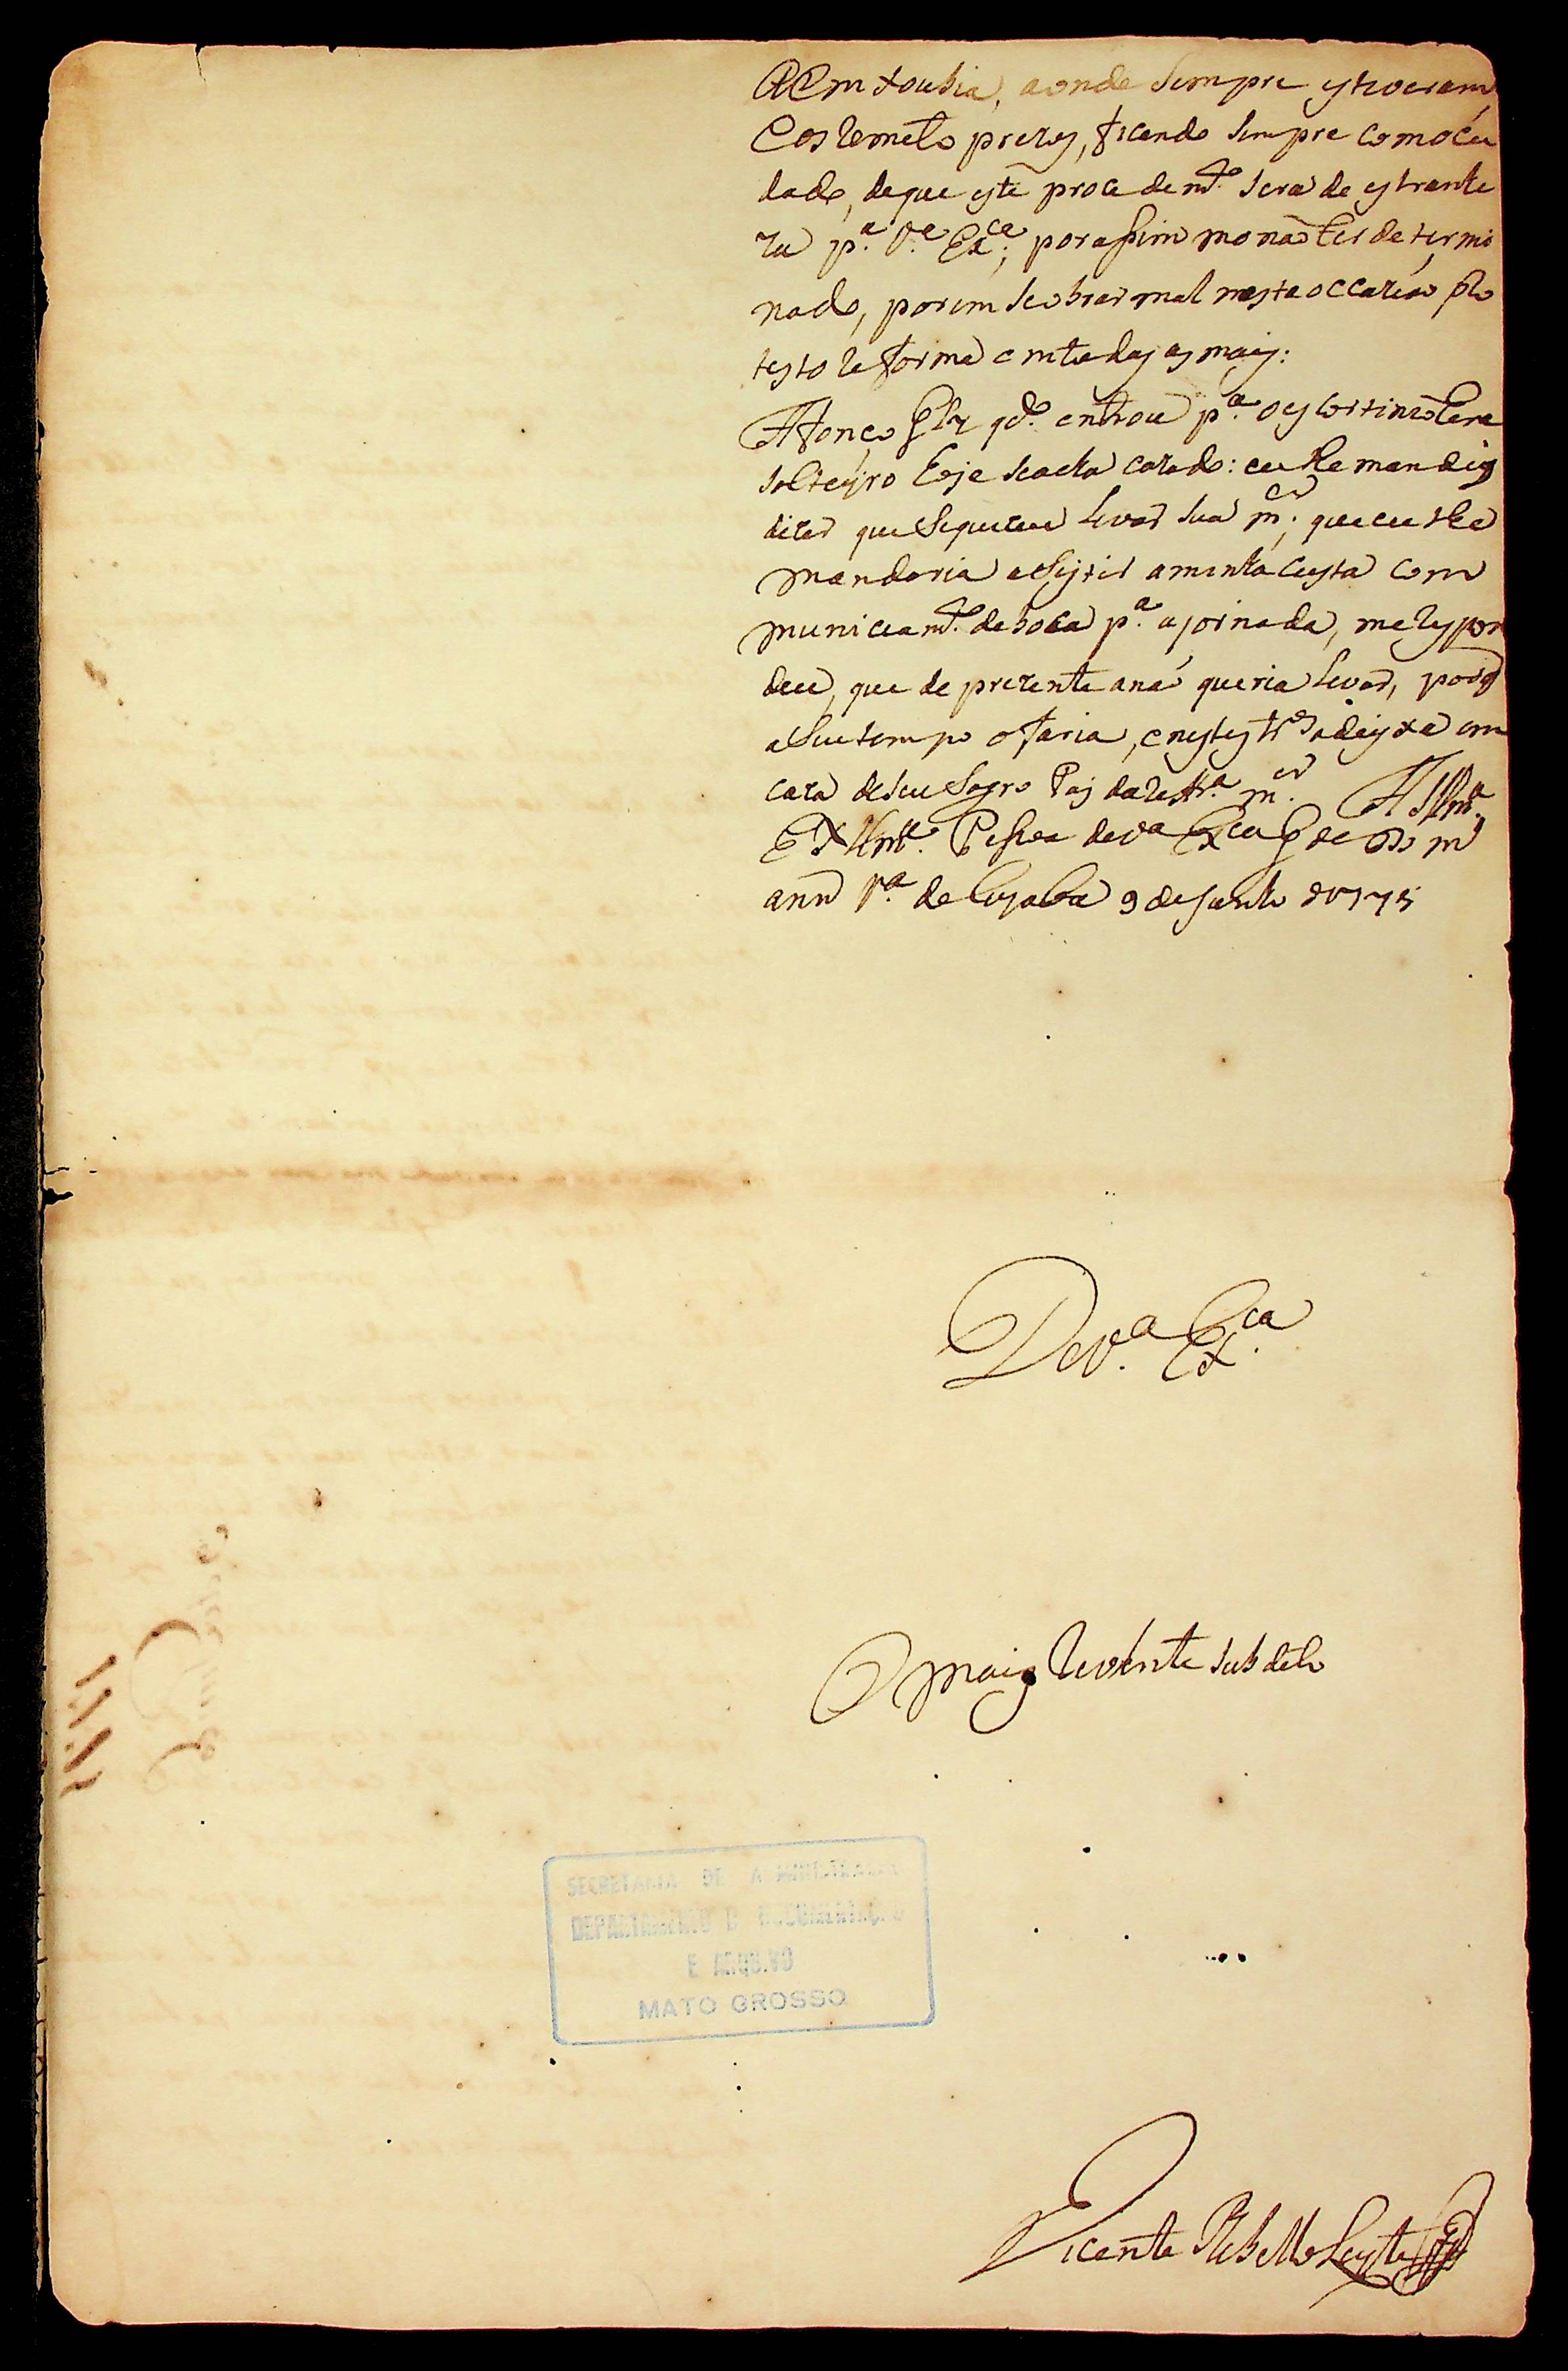 aonde sempre estiveram
prezos, ficando sempre com o cui
dado, de que este procedim.to será de estranhe
za p.a V.a Ex.ca; por assim mo não ter detremi
nado, porem se obrar mal nesta occazião pro
testo reforma em todas as mais:
Afonço Glz q.do entrou p.a o certão hera
solteyro hoje se acha cazado: eu lhe mandey
dizer que se quizece levar sua m.er; que eu lhe
mandaria asestir a minha custa com
municiam.to de boca p.a a jornada, me respon
deu, que de prezente a não queria levar, porq
a seu tempo o faria, e nestes tr.os a deyxa em
caza de seu sogro Pay da d.a m.er A Ill.ma
e Ex.ma Pessoa de V.a Ex.ca G.de Ds m.
ann V.a de Cuyaba 9 de Junho de 175
De V.a Ex.ca
O mais reverente subdito
Vicente Rebello Leyte
SECRETARIA DE ADMINISTRAÇÃO
DEPARTAMENTO DE DOCUMENTAÇÃO
E ARQUIVO
MATO GROSSO